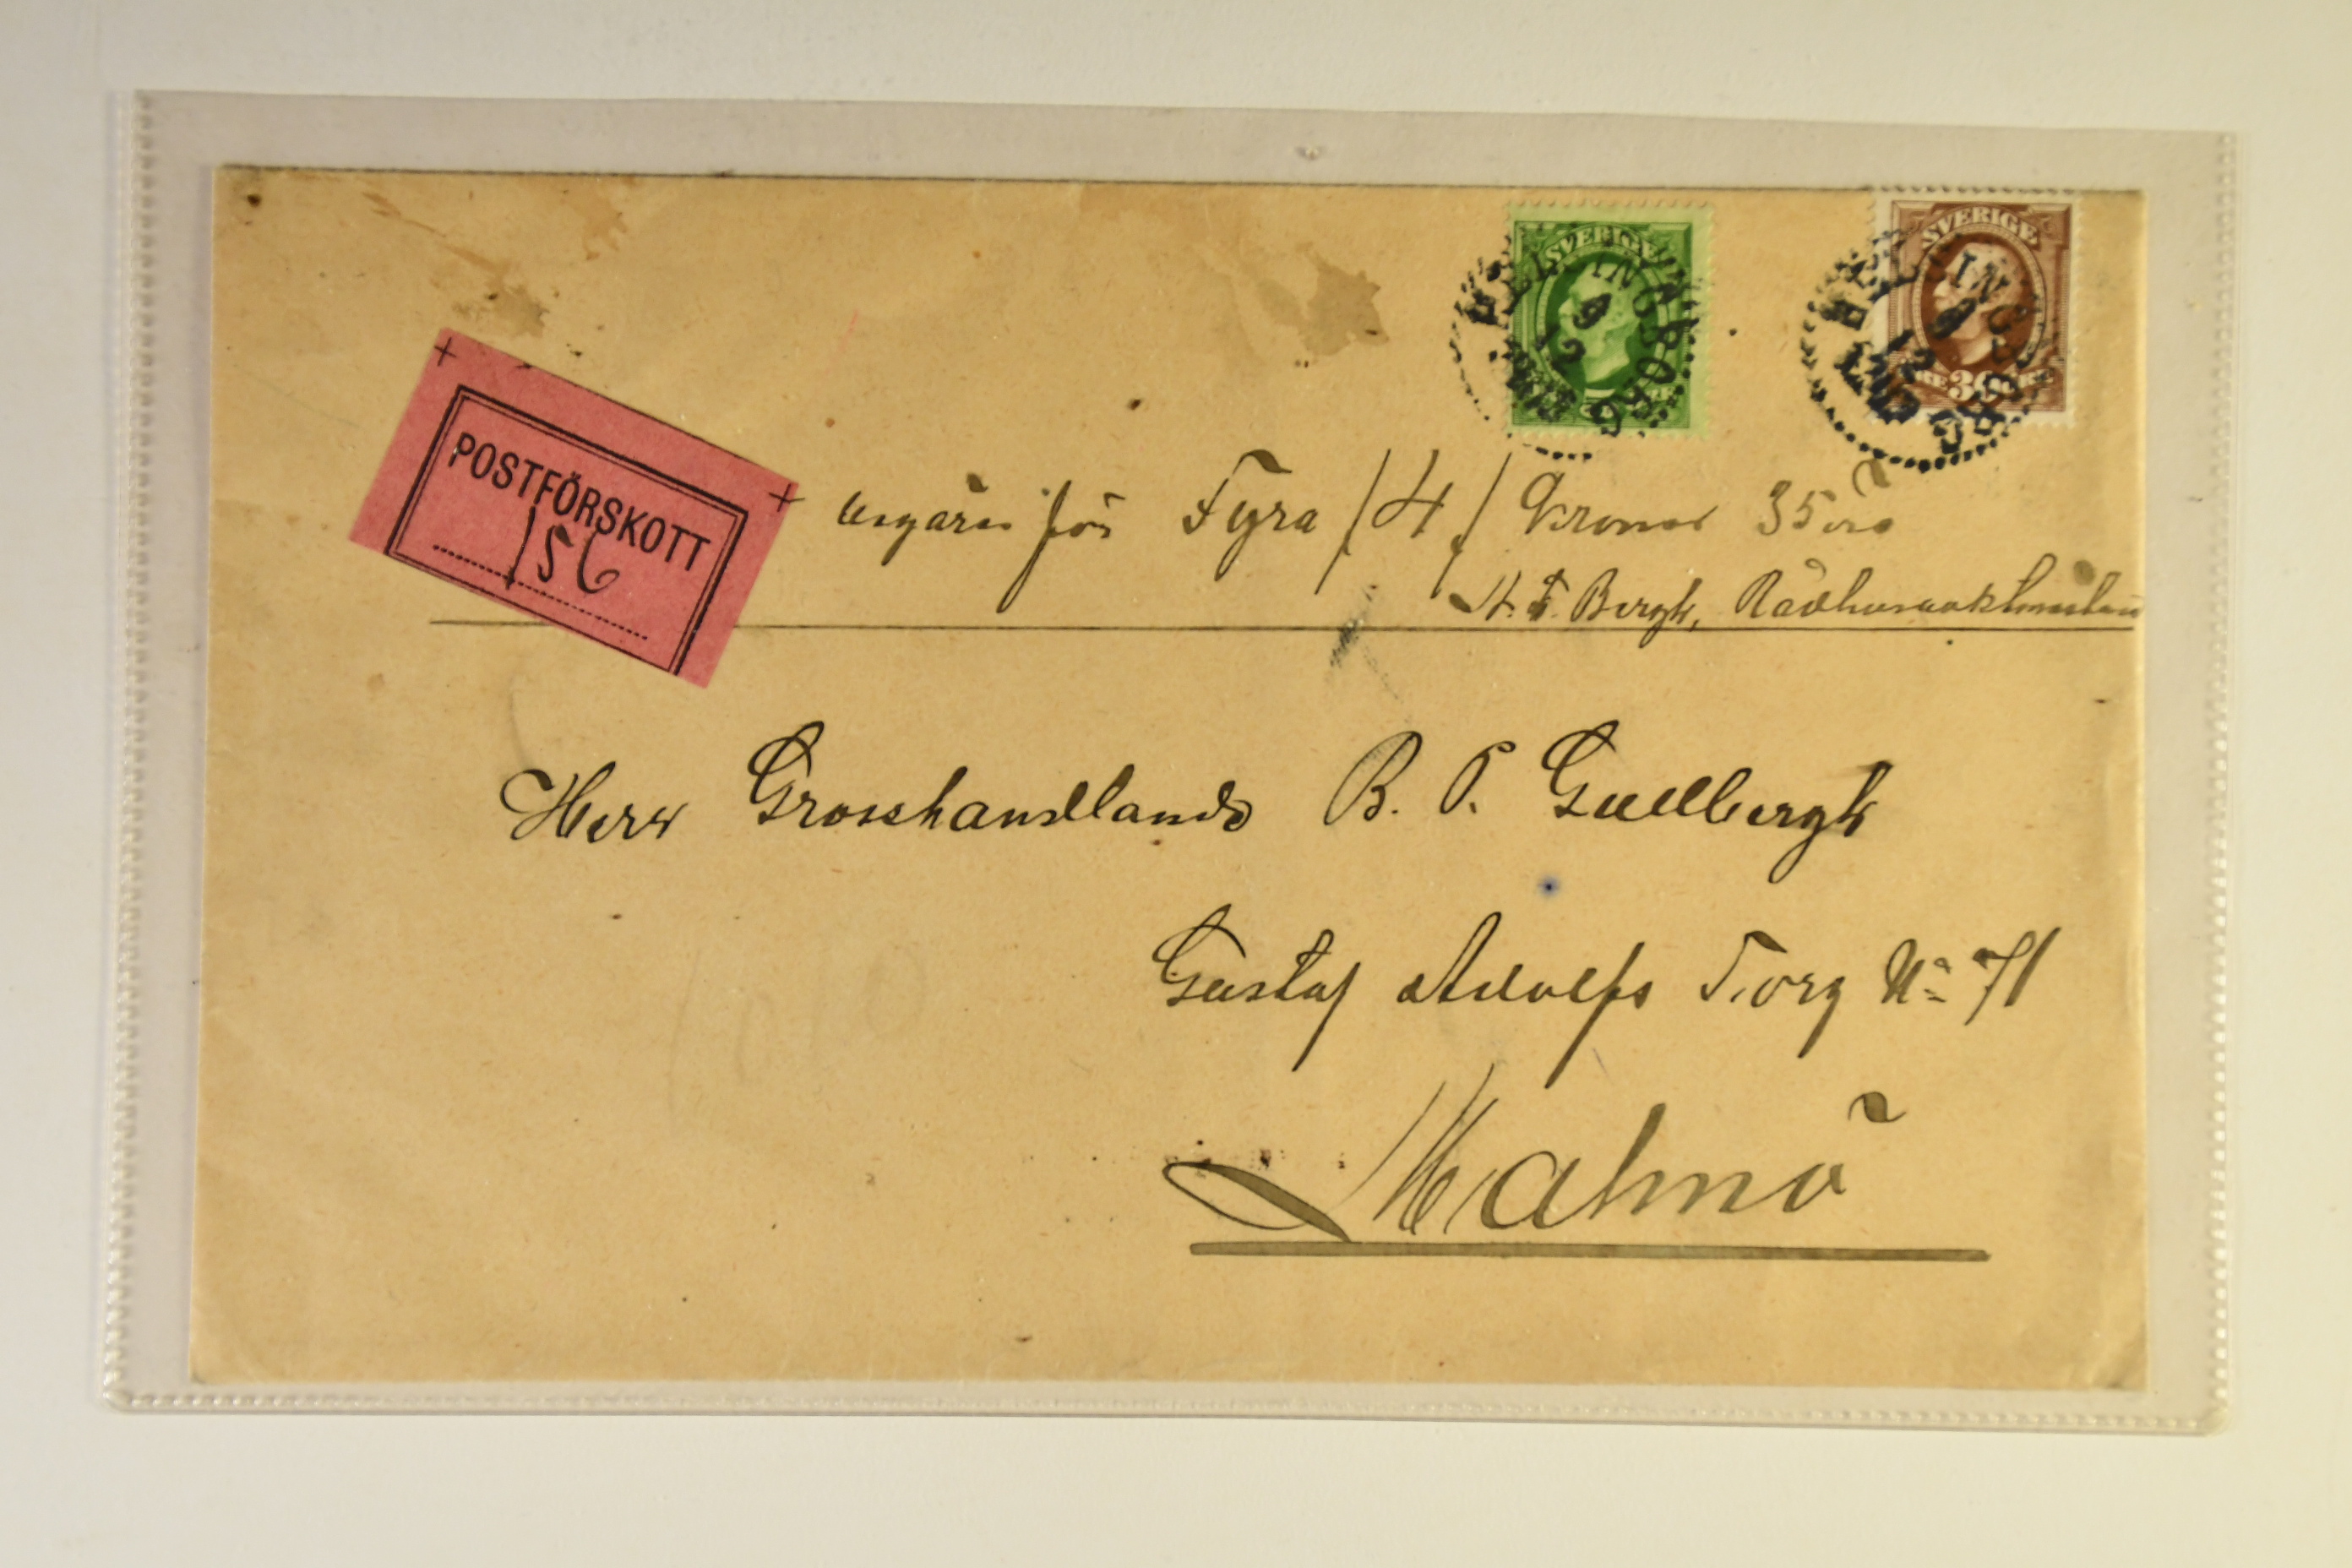 SVERIGE
HELSINGBORG
9 12
SVERIGE
30
HELSINGBORG
9 12
POSTFÖRSKOTT
156
för Fyra /4/ Kronor 35 öre
Bergh, Rådhusvaktmästare
Herr Grosshandlande B. P. Gudbergh
Gustaf Adolfs Torg No 71
Malmö